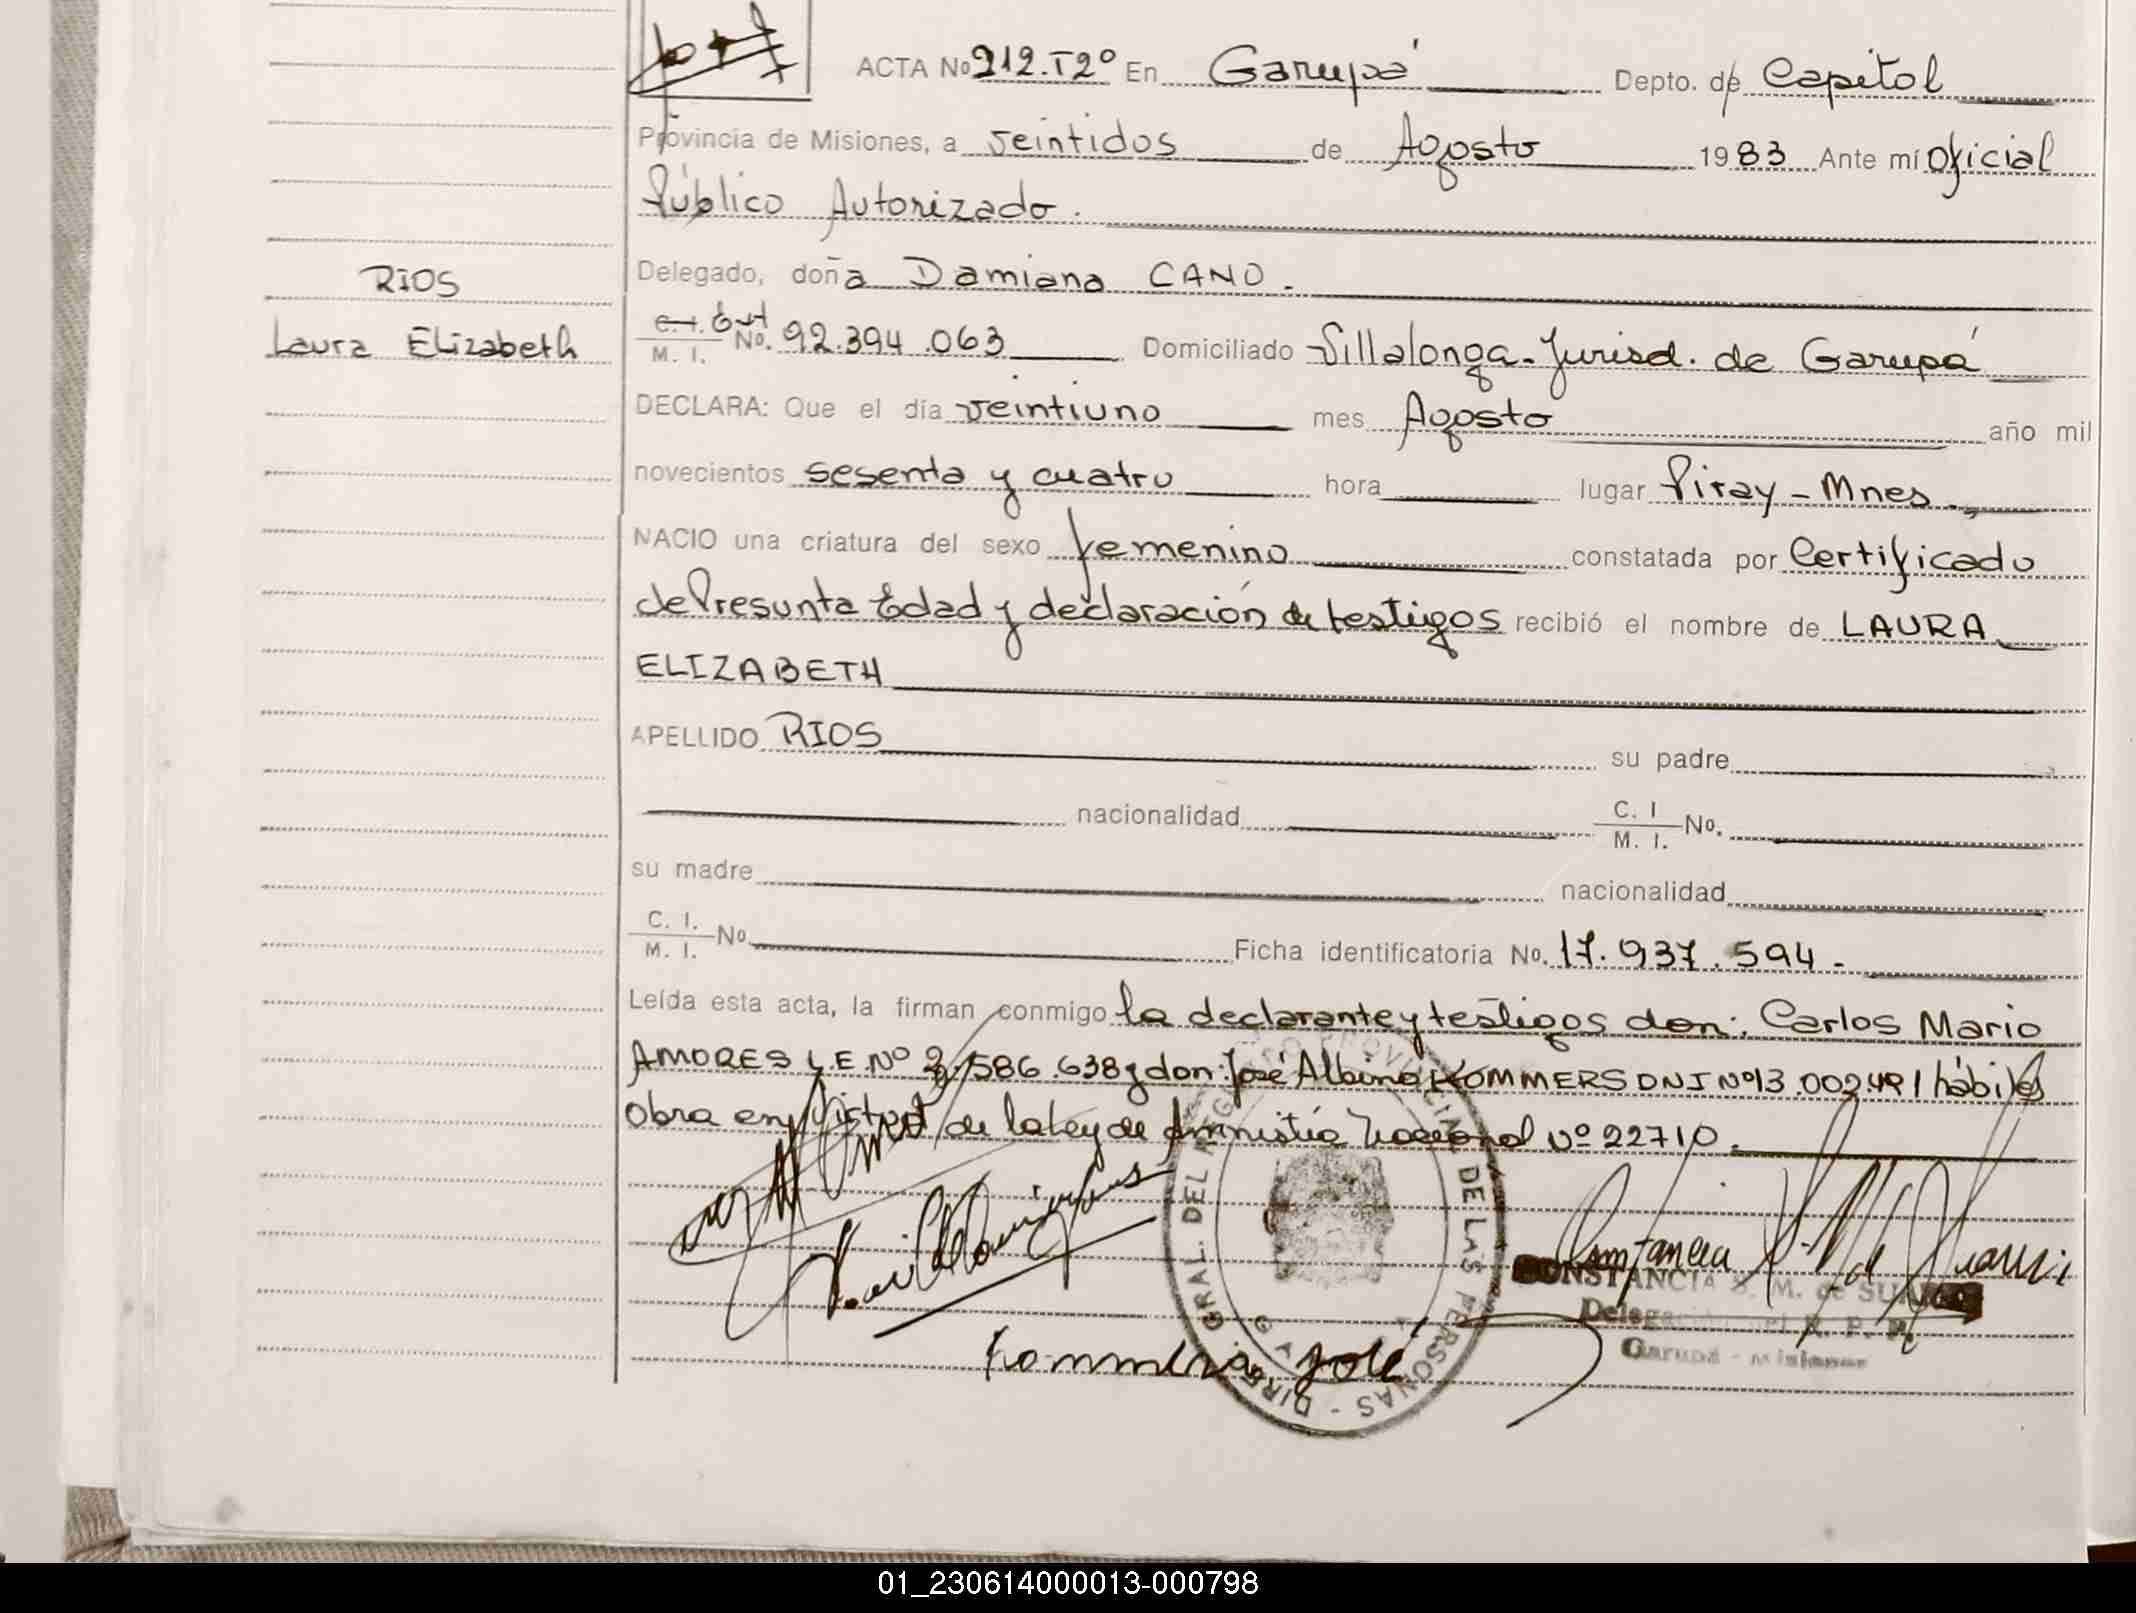 ACTA No 212.T2º En Garupá Depto. de Capital
Provincia de Misiones, a veintidos de Agosto 1983 Ante mí Oficial
Público Autorizado.
Delegado, doña Damiana CANO.
RIOS
Laura Elizabeth
C.I. Ext M. I. No. 92.394.063 Domiciliado Villalonga-Jurisd. de Garupá
DECLARA: Que el día veintiuno mes Agosto año mil
novecientos sesenta y cuatro hora lugar Piray-Mnes.
NACIO una criatura del sexo femenino constatada por Certificado
de Presunta Edad y declaración de testigos recibió el nombre de LAURA
ELIZABETH
APELLIDO RIOS su padre
nacionalidad C. I M. I. No.
su madre nacionalidad
C. I. M. I. No. Ficha identificatoria No. 17.937.594.
Leída esta acta, la firman conmigo la declarante y testigos don: Carlos Mario
AMORES L.E.Nº 586.638 y don: José Albino KOMMERS DNI Nº 13.002.491 hábiles
Obra en de la Ley de Amnistía Nacional Nº 22710.
DIRE. GRAL. DEL REGISTRO PROVINCIAL DE LAS PERSONAS -
CONSTANCIA S. M. de SUAREZ
Delegación del R. P. P.
Garupá - Misiones
Kommers José
01_230614000013-000798